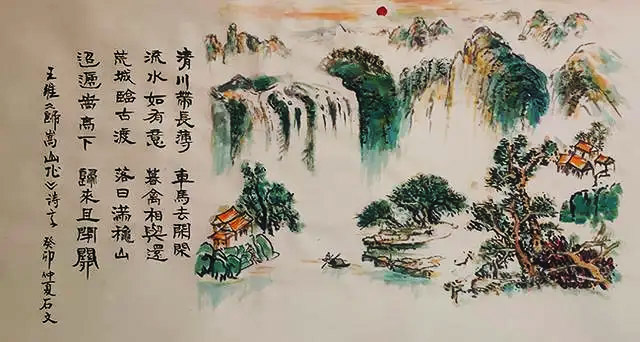 清川帶長薄 車馬去閒閒
流水如有意 暮禽相與還
荒城臨古渡 落日滿穐山
迢遞嵩高下 歸來且閉關
王維《歸嵩山作》詩意 癸卯仲夏石文